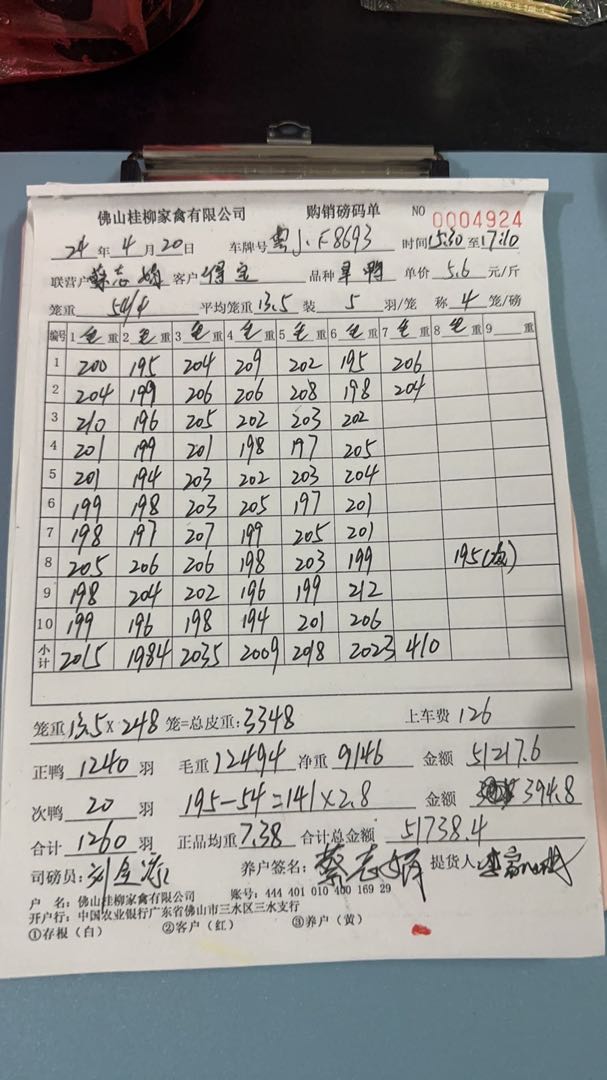 佛山桂柳家禽有限公司 购销磅码单 NO 0004924
24 年 4 月 20 日 车牌号 粤J·F8693 时间 15:30 至 17:10
联营户 客户 得宝 品种 单鸭 单价 5.6 元/斤
笼重 54/4 平均笼重 13.5 装 5 羽/笼 称 4 笼/磅
编号 1 毛 重 2 毛 重 3 毛 重 4 毛 重 5 毛 重 6 毛 重 7 毛 重 8 毛 重 9 重
1 200 195 204 209 202 195 206
2 204 199 206 206 208 198 204
3 210 196 205 202 203 202
4 201 199 201 198 197 205
5 201 194 203 202 203 204
6 199 198 203 205 197 201
7 198 197 207 199 205 201
8 205 206 206 198 203 199 195(次)
9 198 204 202 196 199 212
10 199 196 198 194 201 206
小计 2015 1984 2035 2009 2018 2023 410
笼重 13.5 × 248 笼=总皮重: 3348 上车费 126
正鸭 1240 羽 毛重 12494 净重 9146 金额 51217.6
次鸭 20 羽 195-54=141×2.8 金额 394.8
合计 1260 羽 正品均重 7.38 合计总金额 51738.4
司磅员: 养户签名: 提货人:
户 名: 佛山桂柳家禽有限公司 账号: 444 401 010 400 169 29
开户行: 中国农业银行广东省佛山市三水区三水支行
①存根(白) ②客户(红) ③养户(黄)